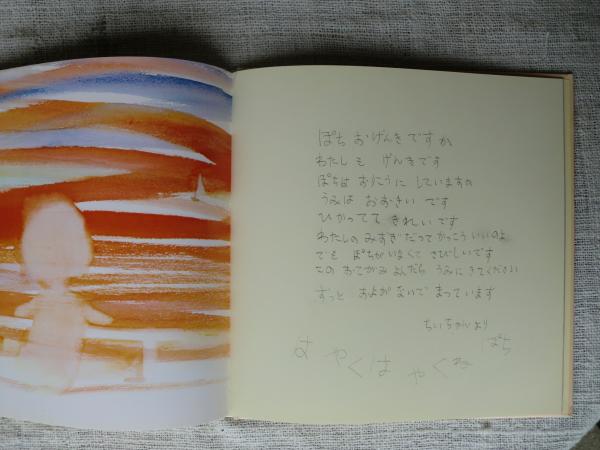 ぽち おげんきですか
わたしも げんきです
ぽちは おりこうに していますか
うみは おおきい です
ひかってて きれいです
わたしの みずぎだって かっこう いいのよ
でも ぽちが いなくて さびしいです
この おてがみ よんだら うみに きてください
ずっと およがないで まっています
ちいちゃん より
ぽち
はやくはやくね